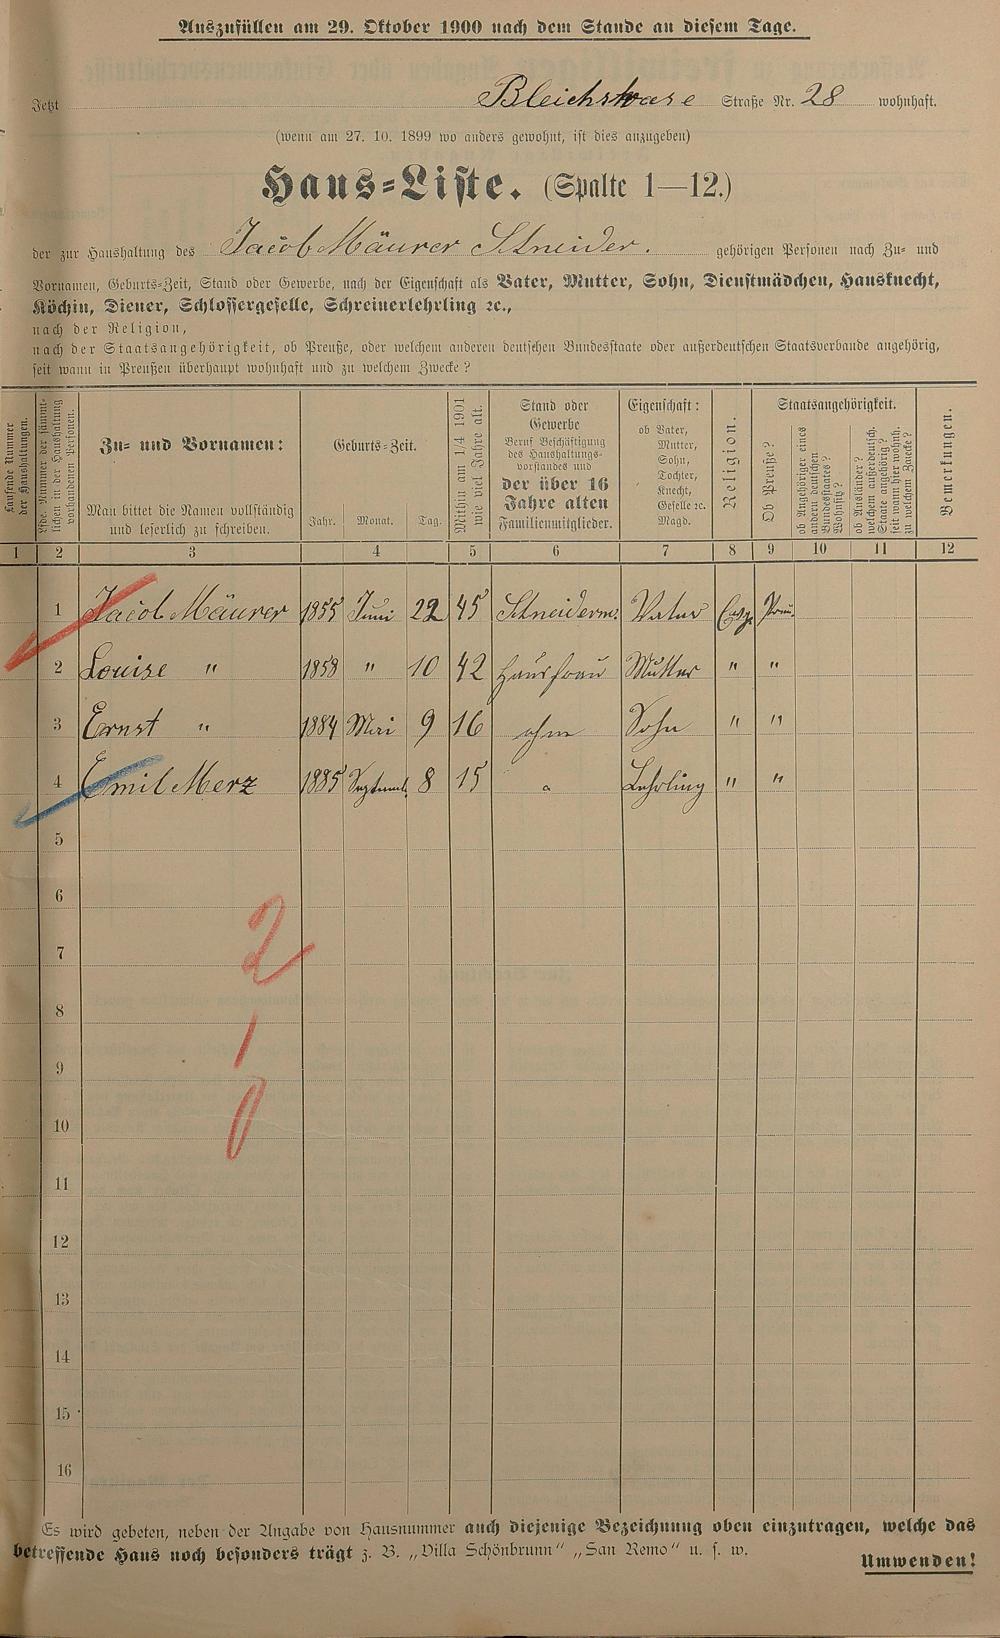 Auszufüllen am 29. Oktober 1900 nach dem Stande an diesem Tage.
Jetzt Bleichstrase Straße Nr. 28 wohnhaft.
(wenn am 27. 10. 1899 wo anders gewohnt, ist dies anzugeben)
Haus=Liste. (Spalte 1—12.)
der zur Haushaltung des Jacob Mäurer Schneider. gehörigen Personen nach Zu= und
Vornamen, Geburts=Zeit, Stand oder Gewerbe, nach der Eigenschaft als Vater, Mutter, Sohn, Dienstmädchen, Hausknecht,
Köchin, Diener, Schlossergeselle, Schreinerlehrling ꝛc.,
nach der Religion,
nach der Staatsangehörigkeit, ob Preuße, oder welchem anderen deutschen Bundesstaate oder außerdeutschen Staatsverbande angehörig,
seit wann in Preußen überhaupt wohnhaft und zu welchem Zwecke?
Laufende Nummer
der Haushaltungen.
Lfde. Nummer der sämmt-
lichen in der Haushaltung
vorhandenen Personen.
Zu= und Vornamen:
Man bittet die Namen vollständig
und leserlich zu schreiben.
Geburts=Zeit.
Jahr. Monat. Tag.
Mithin am 1/4 1901
wie viel Jahre alt.
Stand oder
Gewerbe
Beruf Beschäftigung
des Haushaltungs-
vorstandes und
der über 16
Jahre alten
Familienmitglieder.
Eigenschaft:
ob Vater,
Mutter,
Sohn,
Tochter,
Knecht,
Geselle ꝛc.
Magd.
Religion.
Staatsangehörigkeit.
Ob Preuße?
ob Angehöriger eines
andern deutschen
Bundesstaates?
Wohnsitz?
ob Ausländer?
welchem außerdeutsch.
Staate angehörig?
seit wann hier wohnh.
zu welchem Zwecke?
Bemerkungen.
1 2 3 4 5 6 7 8 9 10 11 12
1 Jacob Mäurer 1855 Juni 22 45 Schneiderm. Vater Evg. Preu.
2 Louise " 1858 " 10 42 Hausfrau Mutter " "
3 Ernst " 1884 Mai 9 16 ohne Sohn " "
4 Emil Merz 1885 Septemb. 8 15 " Lehrling " "
5
6
2
7
8
1
9
0
10
11
12
13
14
15
16
Es wird gebeten, neben der Angabe von Hausnummer auch diejenige Bezeichnung oben einzutragen, welche das
betreffende Haus noch besonders trägt z. B. „Villa Schönbrunn" „San Remo" u. s. w.
Umwenden!